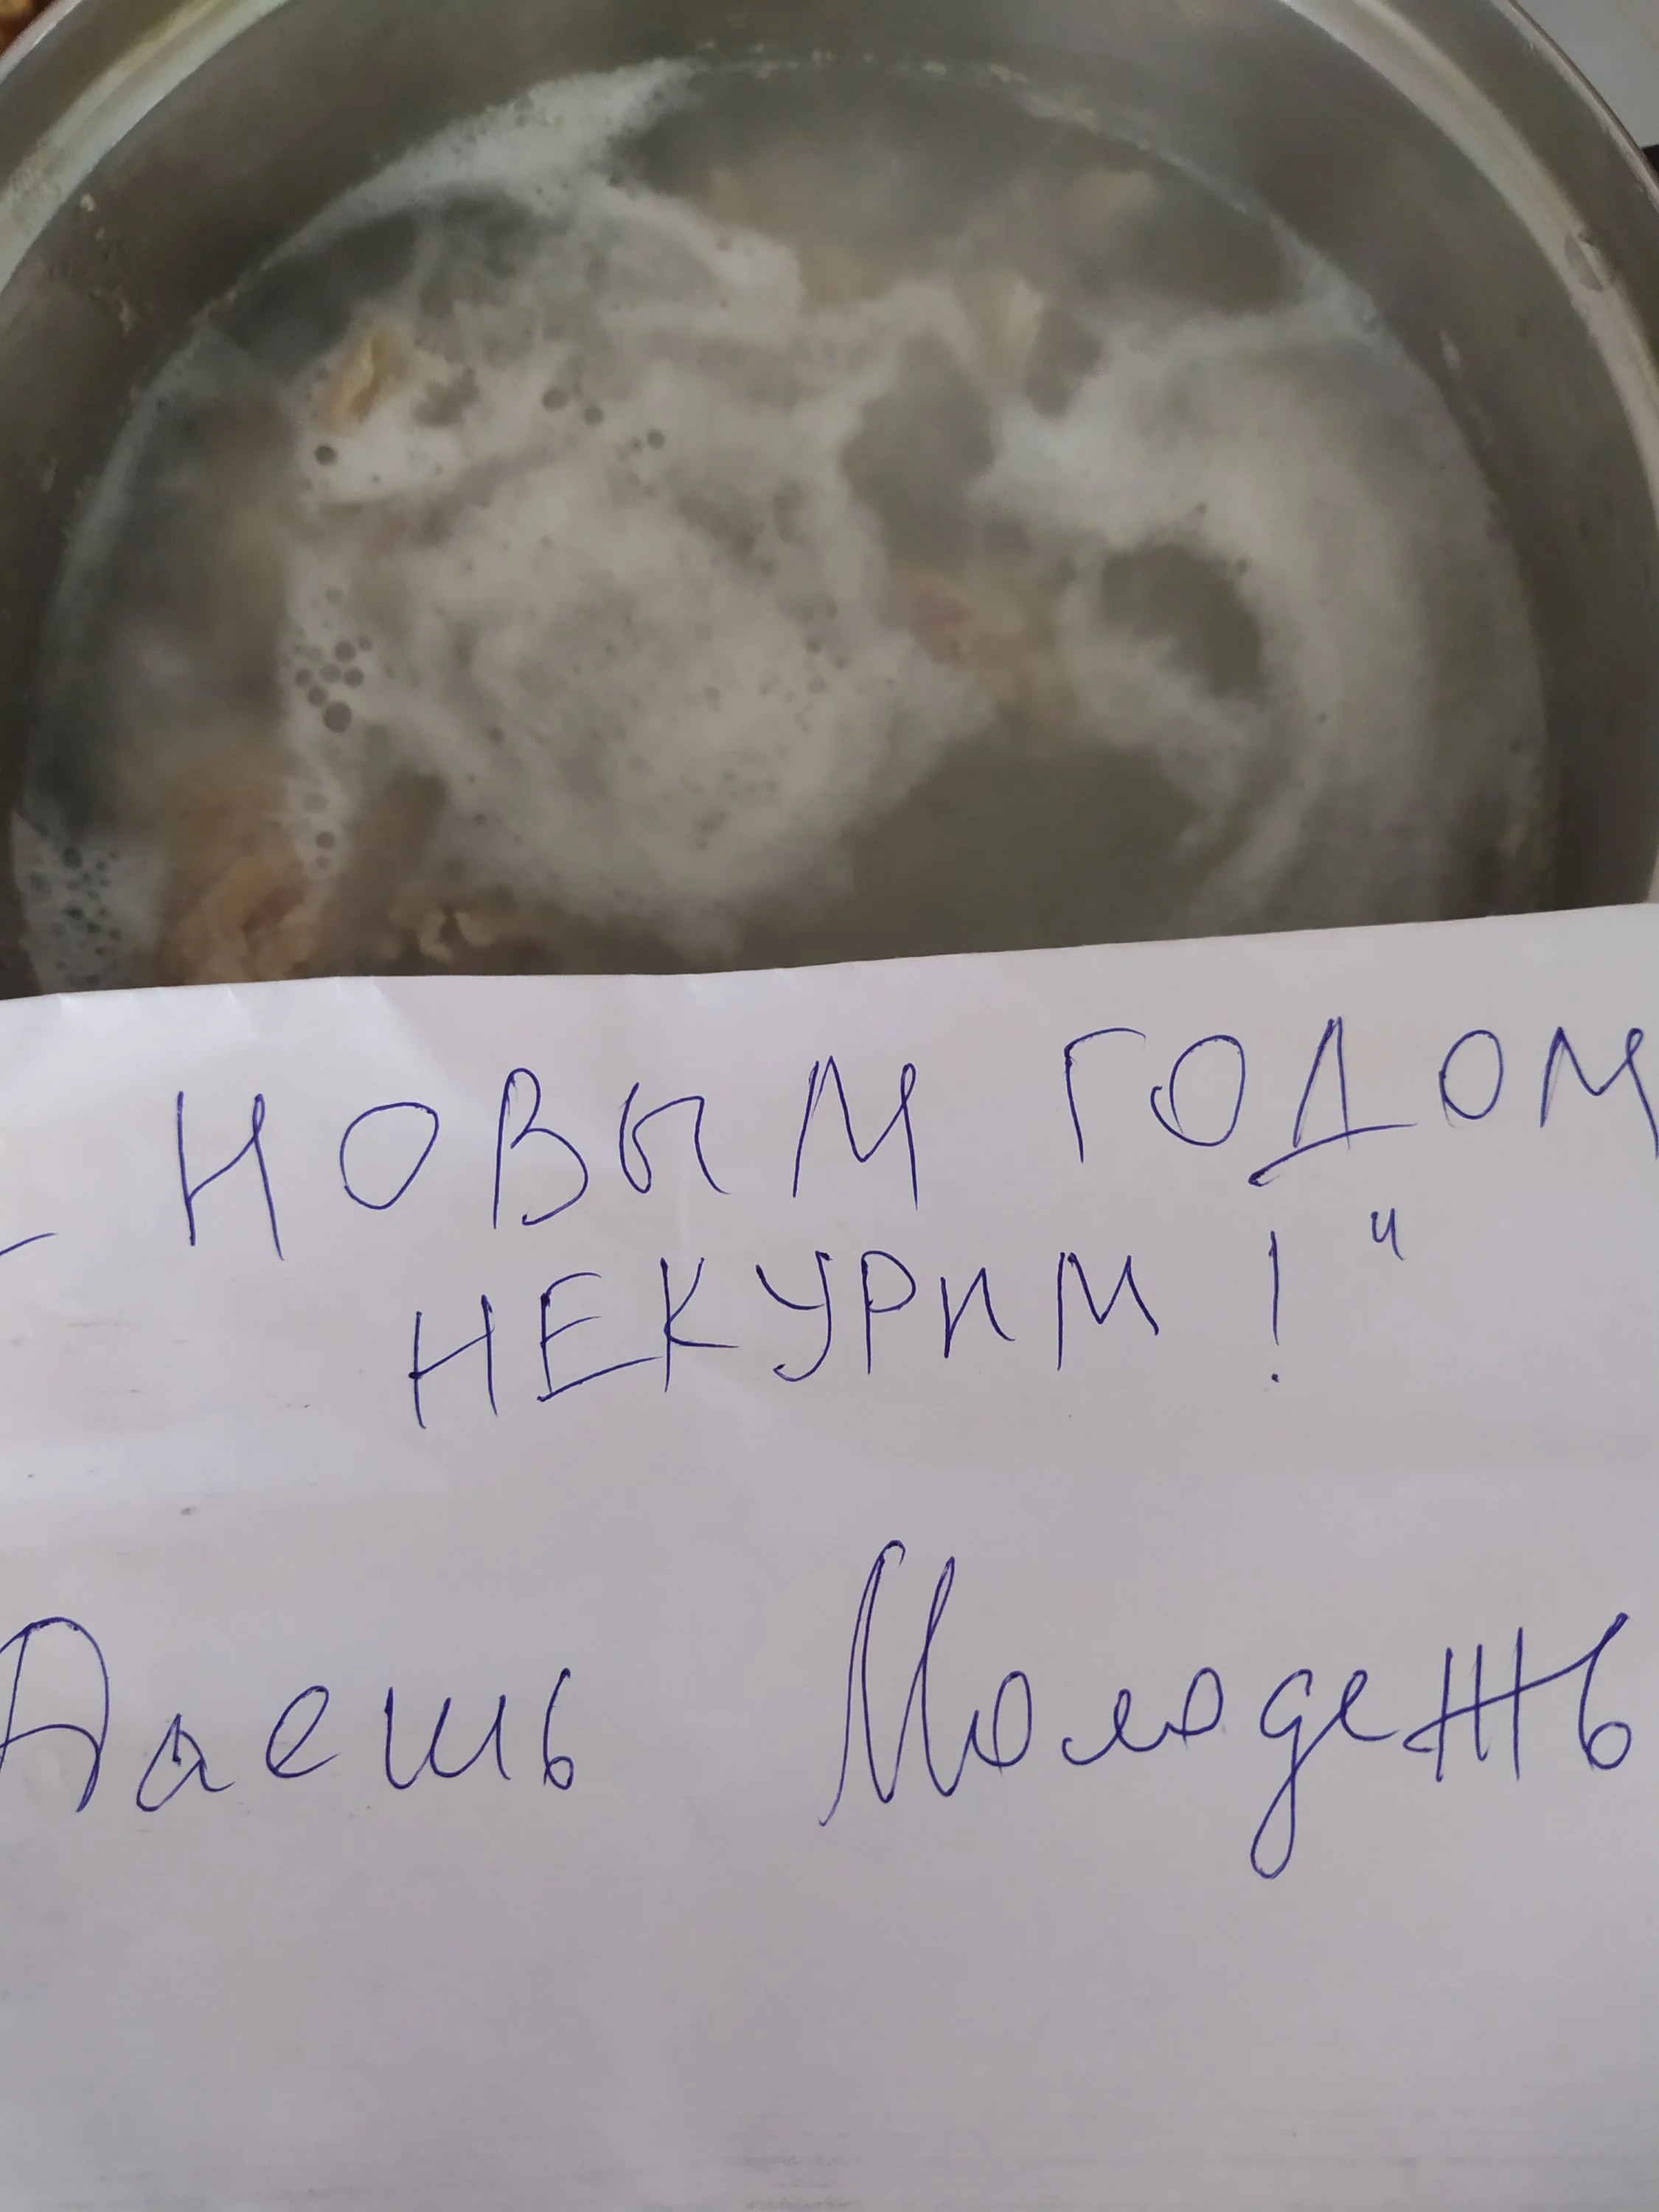 НОВЫМ ГОДОМ
НЕКУРИМ!"
Даешь Молодежь